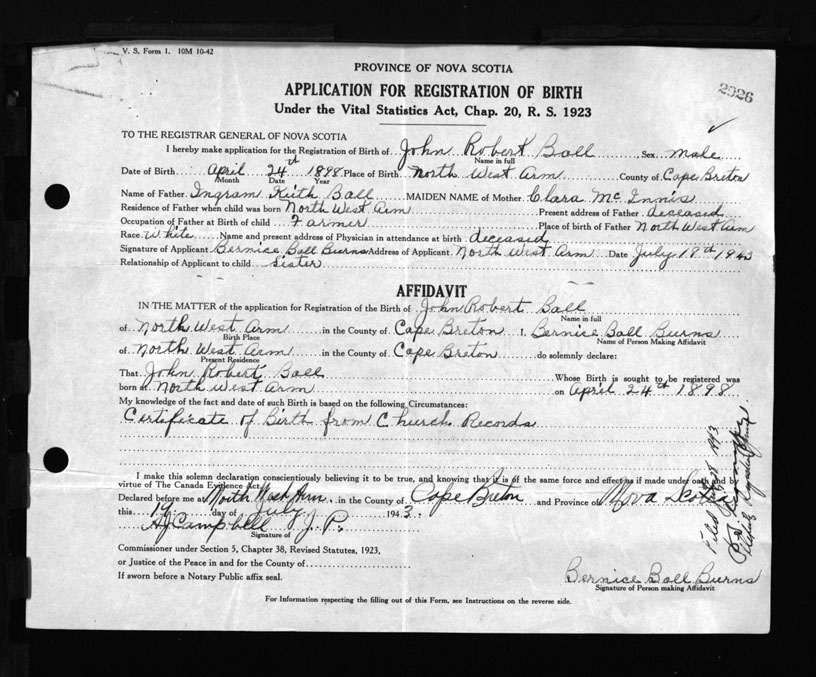 V. S. Form 1. 10M 10-42
PROVINCE OF NOVA SCOTIA
APPLICATION FOR REGISTRATION OF BIRTH
2926
Under the Vital Statistics Act, Chap. 20, R. S. 1923
TO THE REGISTRAR GENERAL OF NOVA SCOTIA
I hereby make application for the Registration of Birth of John Robert Ball Sex male
Name in full
Date of Birth April 24th 1898 Place of Birth North West Arm County of Cape Breton
Month Date Year
Name of Father Ingram Keith Ball MAIDEN NAME of Mother Clara McInnis
Residence of Father when child was born North West Arm Present address of Father deceased
Occupation of Father at Birth of child Farmer Place of birth of Father North West Arm
Race White Name and present address of Physician in attendance at birth deceased
Signature of Applicant Bernice Ball Burns Address of Applicant North West Arm Date July 19th 1943
Relationship of Applicant to child sister
AFFIDAVIT
IN THE MATTER of the application for Registration of the Birth of John Robert Ball
Name in full
of North West Arm in the County of Cape Breton I, Bernice Ball Burns
Birth Place Name of Person Making Affidavit
of North West Arm in the County of Cape Breton do solemnly declare:
Present Residence
That John Robert Ball Whose Birth is sought to be registered was
born at North West Arm on April 24th 1898
My knowledge of the fact and date of such Birth is based on the following Circumstances:
Certificate of Birth from Church Records
I make this solemn declaration conscientiously believing it to be true, and knowing that it is of the same force and effect as if made under oath and by
virtue of The Canada Evidence Act.
Declared before me at North West Arm in the County of Cape Breton and Province of Nova Scotia
this 19 day of July 1943.
AJ Campbell J. P.
Signature of
Commissioner under Section 5, Chapter 38, Revised Statutes, 1923,
or Justice of the Peace in and for the County of
If sworn before a Notary Public affix seal.
Bernice Ball Burns
Signature of Person making Affidavit
For Information respecting the filling out of this Form, see Instructions on the reverse side.